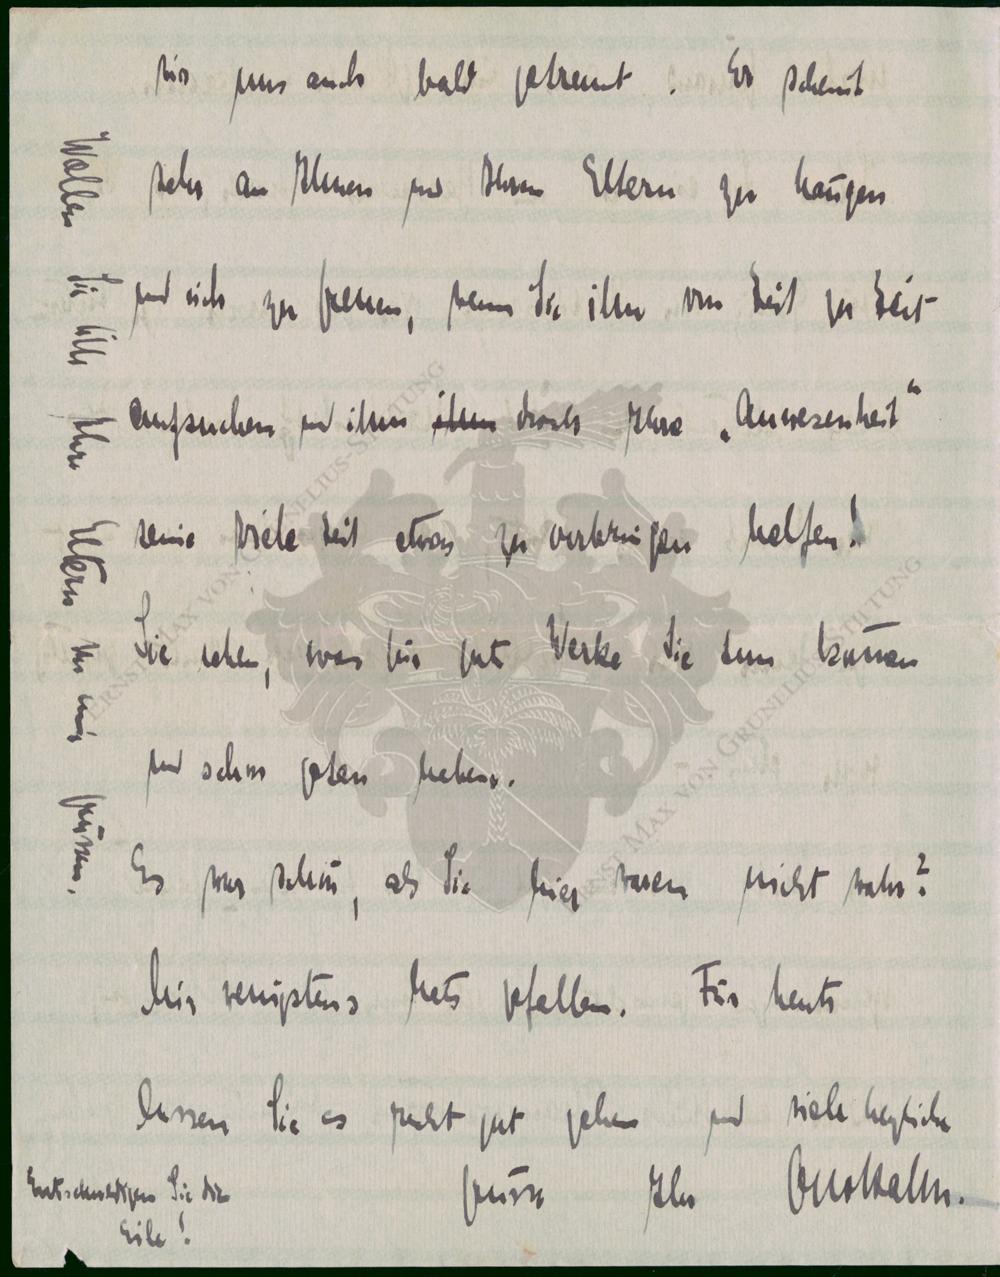 wir uns auch bald getrennt. Er scheint
sehr an Ihnen und Ihren Eltern zu hängen
und sich zu freuen, wenn Sie ihn von Zeit zu Zeit
aufsuchen und ihm ihm durch Ihre „Anwesenheit“
seine viele Zeit etwas zu verbringen helfen!
Sie sehen, was für gute Werke Sie tun können
und schon getan haben.
Es war schön, als Sie hier waren nicht wahr?
Mir wenigstens hats gefallen. Für heute
lassen Sie es recht gut gehen und viele herzliche
Grüsse Ihr Otto Hahn.
Entschuldigen Sie die
Eile!
Wollen Sie bitte Ihre Eltern von mir grüssen.
ERNST MAX VON GRUNELIUS-STIFTUNG
ERNST MAX VON GRUNELIUS-STIFTUNG